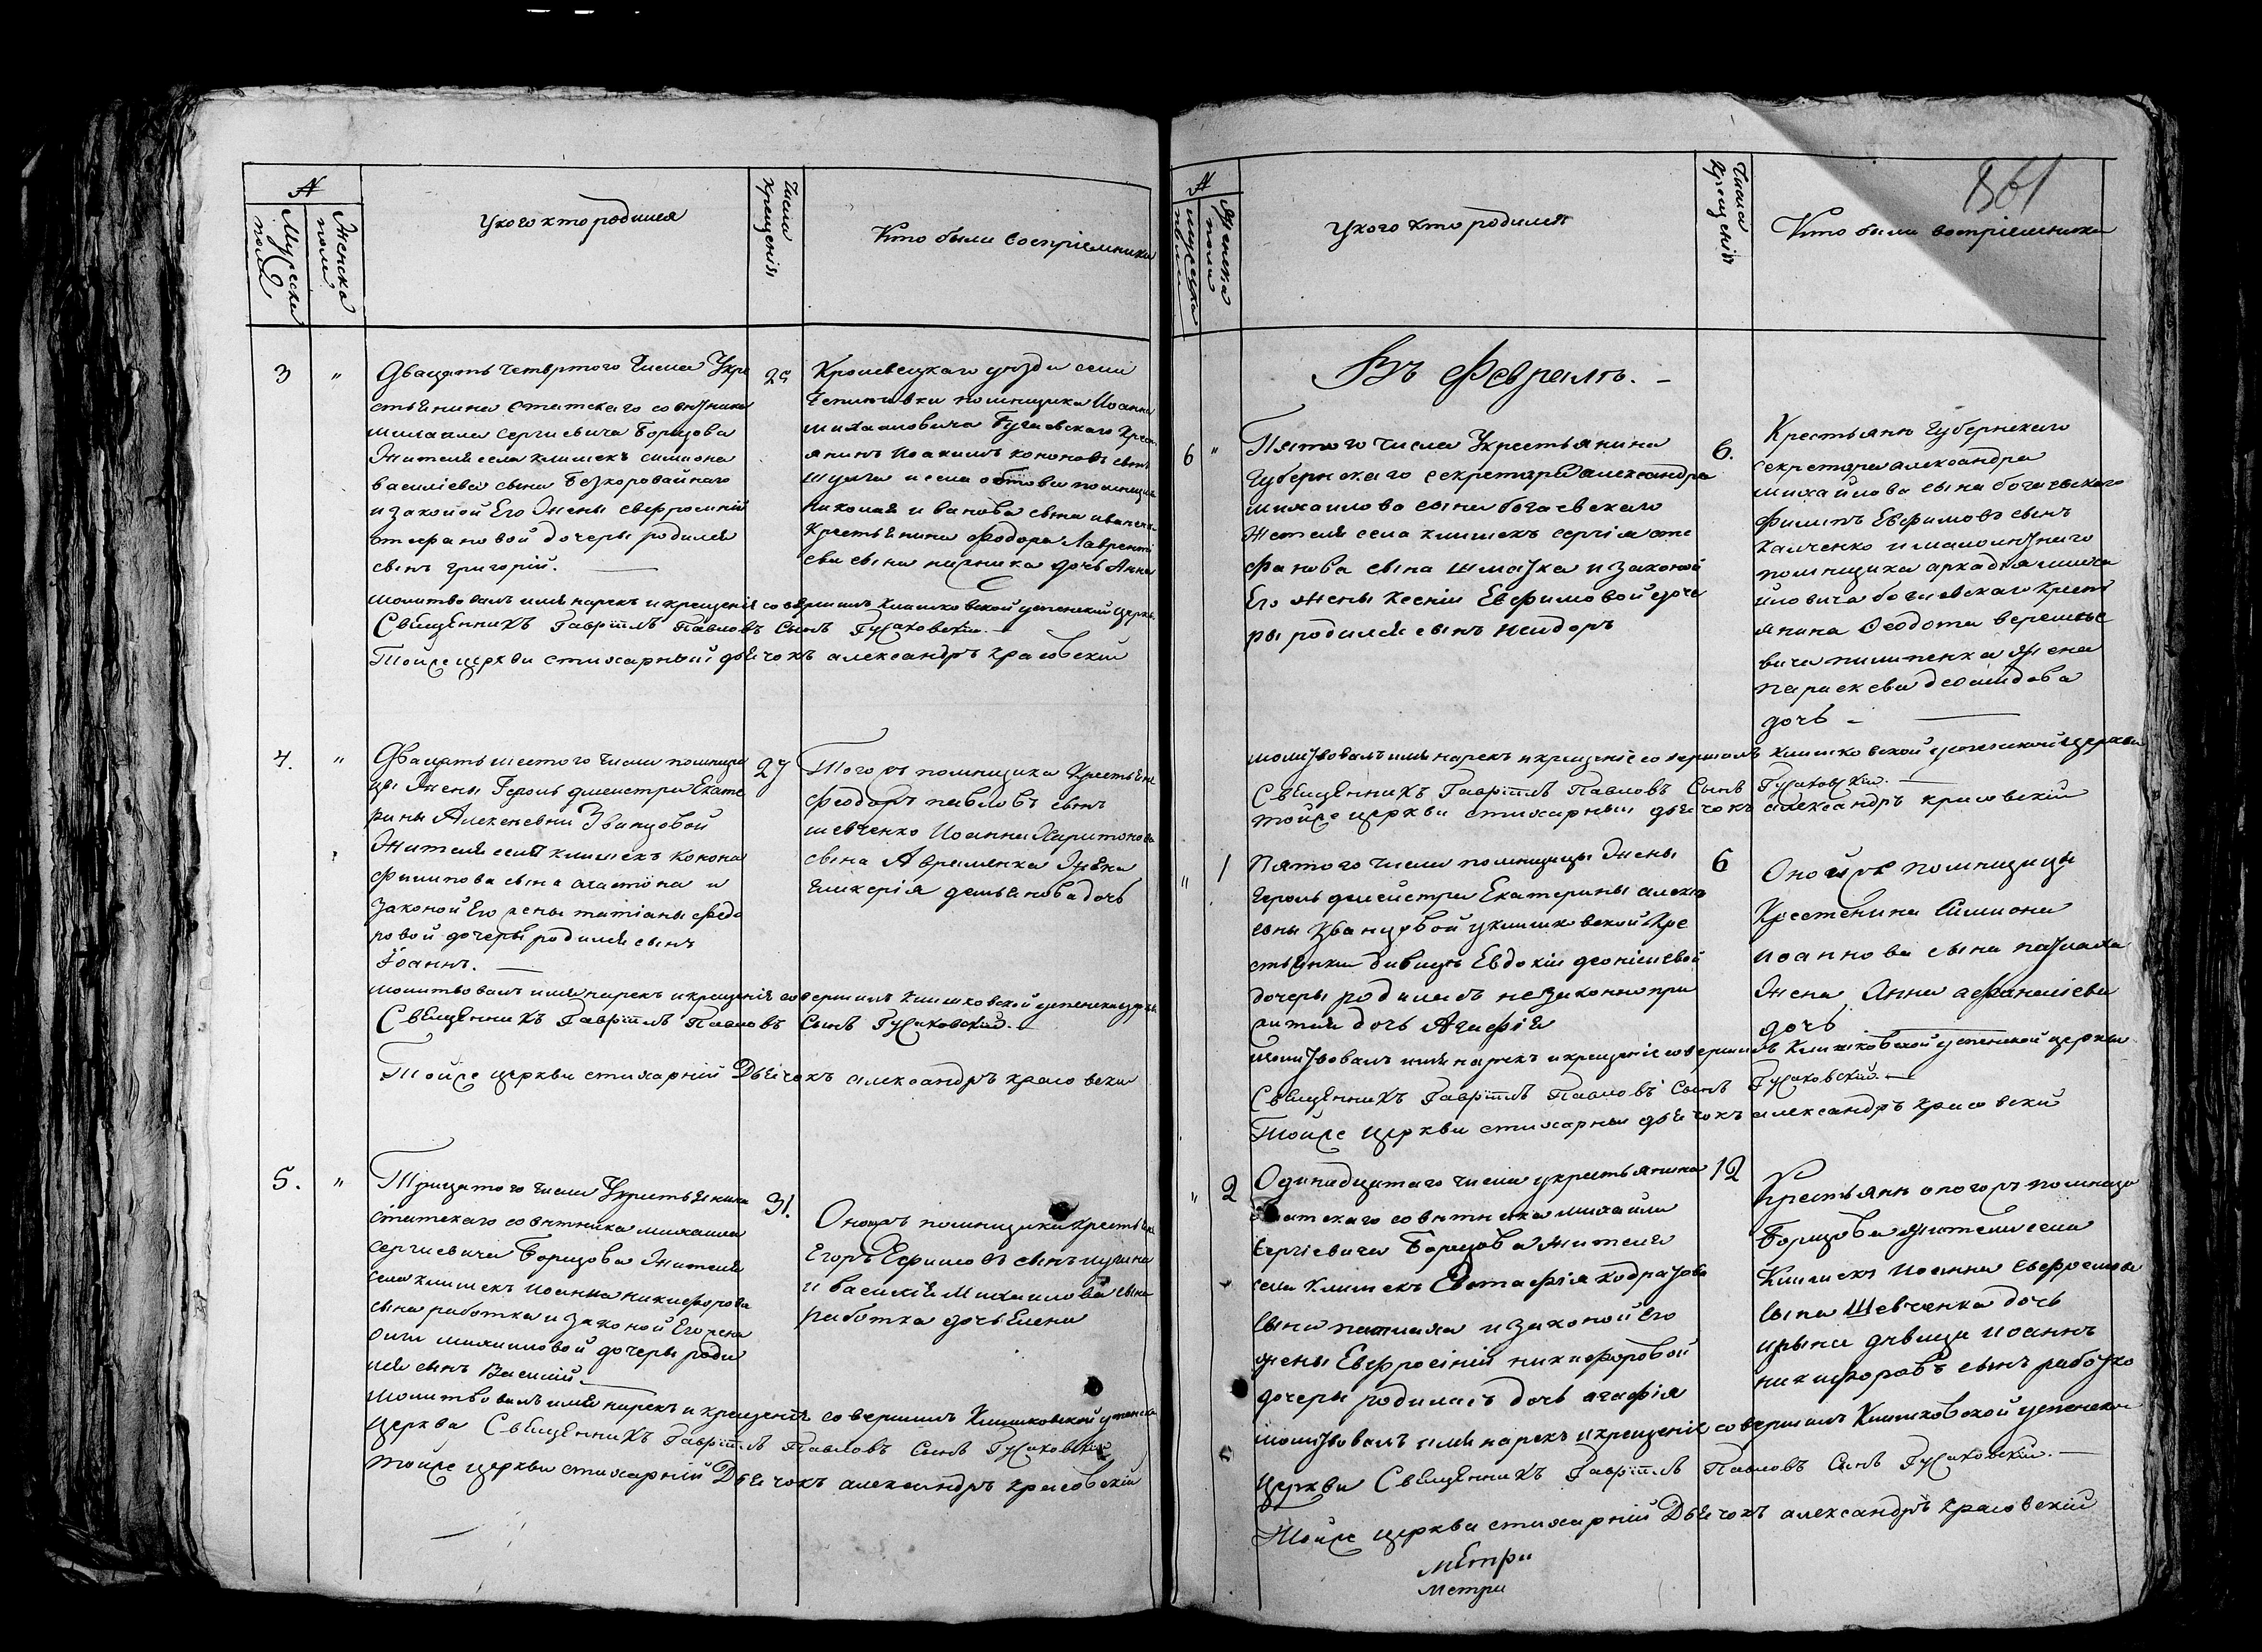 №
Мужеска пола
Женска пола
У кого кто родился
Числа крещенія
Кто были восприемники
3 "
Двацать четвертого числа Укре
стьянина статскаго советника
михаила сергиевича Борщова
Жителя села клишекъ симиона
василіева сына Безкоровайнаго
и законой Его Жены евфросиніи
стефановой дочеры родился
сынъ григорій.
25
Кролевецкаго уезда села
помещика Иоанна
михаиловича Кресть
янинъ Иоакимъ кононовъ сынъ
и села помещика
николая иванова сына
Крестьянина Феодора Лавренті
ева сына дочь Анна
молитвовалъ имя нарекъ и крещеніе совершилъ клишковской успенской церкви
Священникъ Гавріилъ Павловъ Сынъ Гусаковскій.
Тойже церкви стихарный дьячокъ александръ красовскій
4. "
Двацать шестого числа помещи
цы Жены Героль дмейстра Екате
рины Алексеевны Званцовой
Жителя села клишекъ Конона
филипова сына и
законой Его жены татіаны федо
ровой дочеры родился сынъ
Іоаннъ.
27
Тогожъ помещика Крестьяне
Феодоръ павловъ сынъ
шевченко Иоанна Харитонова
сына Авраменка Жена
гликерія демьянова дочь
молитвовалъ имя нарекъ и крещеніе совершилъ Клишковской успенской церкви
Священникъ Гавріилъ Павловъ Сынъ Гусаковскій.
Тойже церкви стихарній Дьячокъ александръ красовскій
5. "
Трицатого числа Укрестьянина
статскаго советника михаила
сергиевича Борщова Жителя
села клишекъ иоанна никифорова
сына работка и законой Его жены
михаиловой дочеры роди
лся сынъ Василий.
31.
Оногожъ помещика крестьяне
Егоръ Ефимовъ сынъ
и василія Михаилова сына
работка дочь Елена
молитвовалъ имя нарекъ и крещеніе совершилъ Клишковской успенской
церкви Священникъ Гавріилъ Павловъ Сынъ Гусаковскій
Тойже церкви стихарній Дьячокъ александръ красовскій
861
№
мужеска пола
Женска пола
У кого кто родился
Числа крещенія
Кто были восприемники
Въ Феврале. –
6 "
Пятого числа Укрестьянина
Губернскаго секретаря александра
михаилова сына богаевскаго
Жителя села клишекъ сергія сте
фанова сына шматка и законой
Его Жены Ксеніи Евфимовой доче
ры родился сынъ исидоръ
6.
Крестьяне Губернскаго
секретаря александра
михайлова сына богаевскаго
филипъ Евфимовъ сынъ
Халченко и малолетнего
помещика аркадія михаи
иловича богаевскаго крест
янина Феодота
вича пилипенка Жена
параскева
дочь –
молитвовалъ имя нарекъ и крещеніе совершилъ клишковской успенской церкви
Священникъ Гавріилъ Павловъ Сынъ Гусаковскій.
тойже церкви стихарный дьячокъ александръ красовскій
" 1
Пятого числа помещицы Жены
героль дмейстра Екатерины алексе
евны Званцовой уклишковской Кре
стьянки Евдокіи
дочеры родилась незаконно при
житая дочь Агафія
6
Онойже помещицы
Крестенина Симиона
иоаннова сына патлаха
Жена Анна афанасіева
дочь
молитвовалъ имя нарекъ и крещеніе совершилъ Клишковской успенской церкви
Священникъ Гавріилъ Павловъ Сынъ Гусаковскій.
Тойже церкви стихарный дьячокъ александръ красовскій
" 2
Одинадцатаго числа укрестьянина
Статскаго советника михаила
сергіевича Борщова жителя
села клишекъ Евстафія кодратова
сына патлаха и законой его
жены Евфросініи никифоровой
дочеры родилась дочь агафія
12
Крестьяне оногожъ помещика
Борщова жители села
Клишекъ иоанна евфремова
сына Шевченка дочь
ирына девица иоаннъ
никифоровъ сынъ работко
молитвовалъ имя нарекъ и крещеніе совершилъ Клишковской успенской
церкви Священникъ Гавріилъ Павловъ Сынъ Гусаковскій.
Тойже церкви стихарній Дьячокъ александръ красовскій
метри
метри